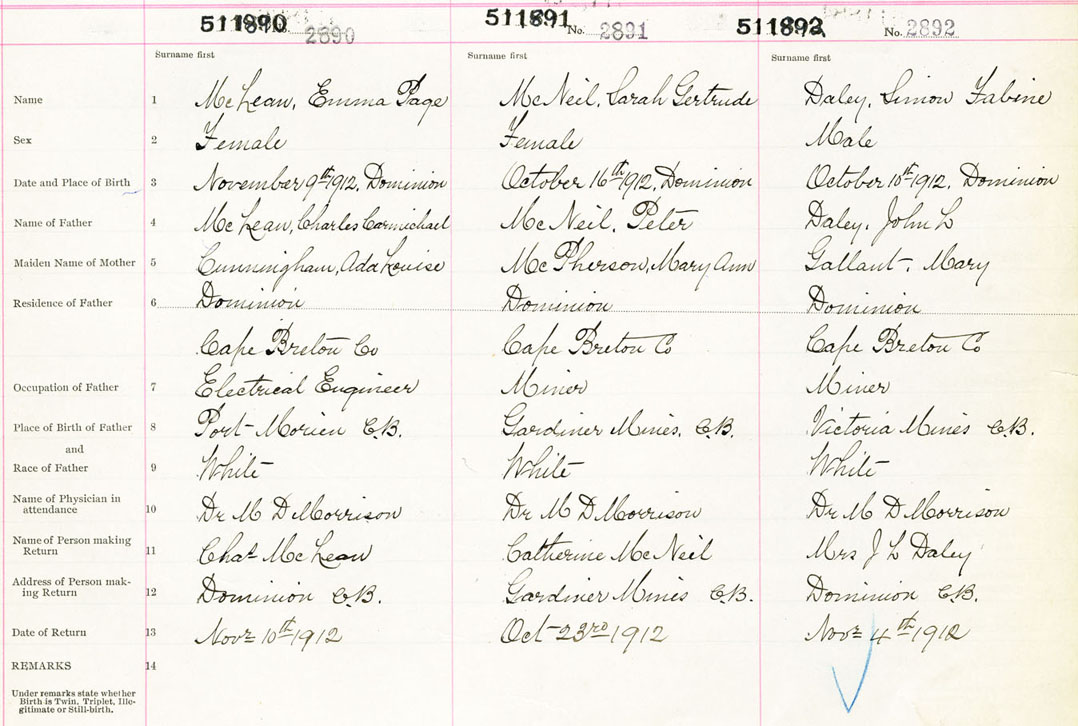 511890 No. 2890 511891 No. 2891 511892 No. 2892
Surname first Surname first Surname first
Name 1 McLean, Emma Page McNeil, Sarah Gertrude Daley, Simon Fabine
Sex 2 Female Female Male
Date and Place of Birth 3 November 9th 1912, Dominion October 16th 1912, Dominion October 10th 1912, Dominion
Name of Father 4 McLean, Charles Carmichael McNeil, Peter Daley, John L
Maiden Name of Mother 5 Cunningham, Ada Louise McPherson, Mary Ann Gallant, Mary
Residence of Father 6 Dominion Dominion Dominion
Cape Breton Co Cape Breton Co Cape Breton Co
Occupation of Father 7 Electrical Engineer Miner Miner
Place of Birth of Father 8 Port Morien C.B. Gardiner Mines, C.B. Victoria Mines C.B.
and
Race of Father 9 White White White
Name of Physician in
attendance 10 Dr M D Morrison Dr M D Morrison Dr M D Morrison
Name of Person making
Return 11 Chas McLean Catherine McNeil Mrs J L Daley
Address of Person mak-
ing Return 12 Dominion C.B. Gardiner Mines C.B. Dominion C.B.
Date of Return 13 Novr 10th 1912 Oct 23rd 1912 Novr 4th 1912
REMARKS 14
Under remarks state whether
Birth is Twin, Triplet, Ille-
gitimate or Still-birth.